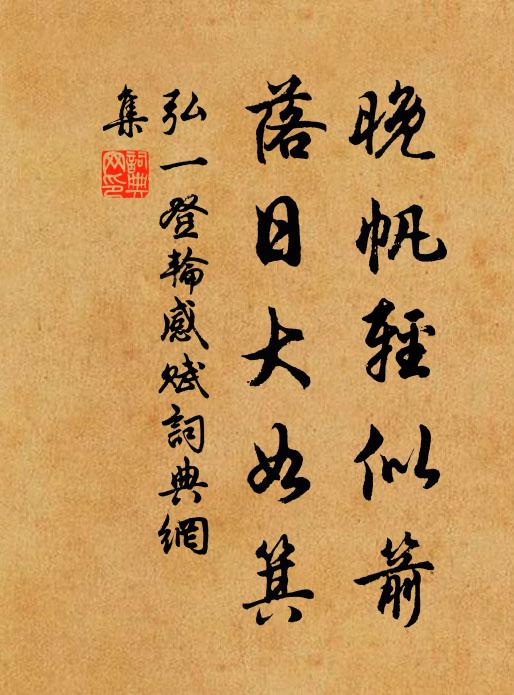 晚帆輕似箭
落日大如箕
弘一登輪感賦詞典網
集
詞典
网印